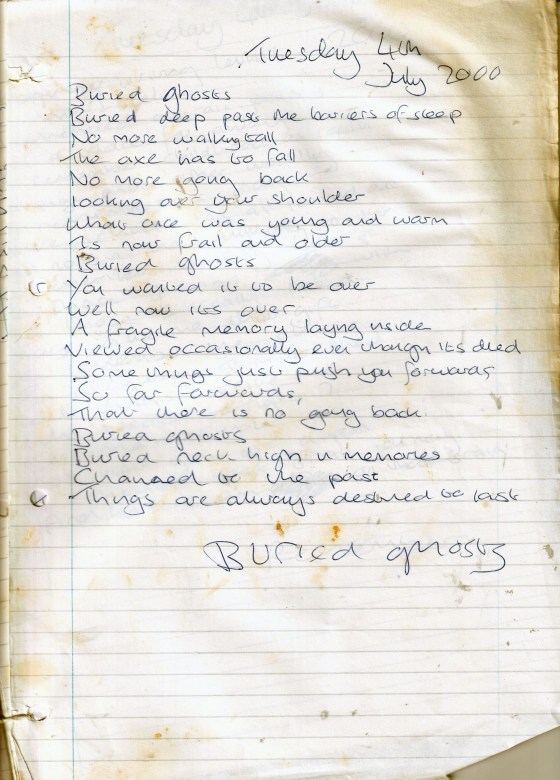 Tuesday 4th
July 2000
Buried ghosts
Buried deep past the barriers of sleep
No more walking tall
The axe has to fall
No more going back
looking over your shoulder
What once was young and warm
Is now frail and older
Buried ghosts
You wanted it to be over
Well now its over
A fragile memory laying inside
Viewed occasionally even though its died
Some things just push you forwards
So far forwards,
That there is no going back
Buried ghosts
Buried neck high in memories
Chained to the past
Things are always destined to last
Buried ghosts